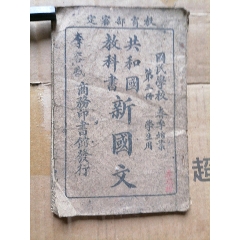 教育部審定
國民學校
春季始業
學生用
第五冊
共和國
教科書
新國文
商務印書館發行
超